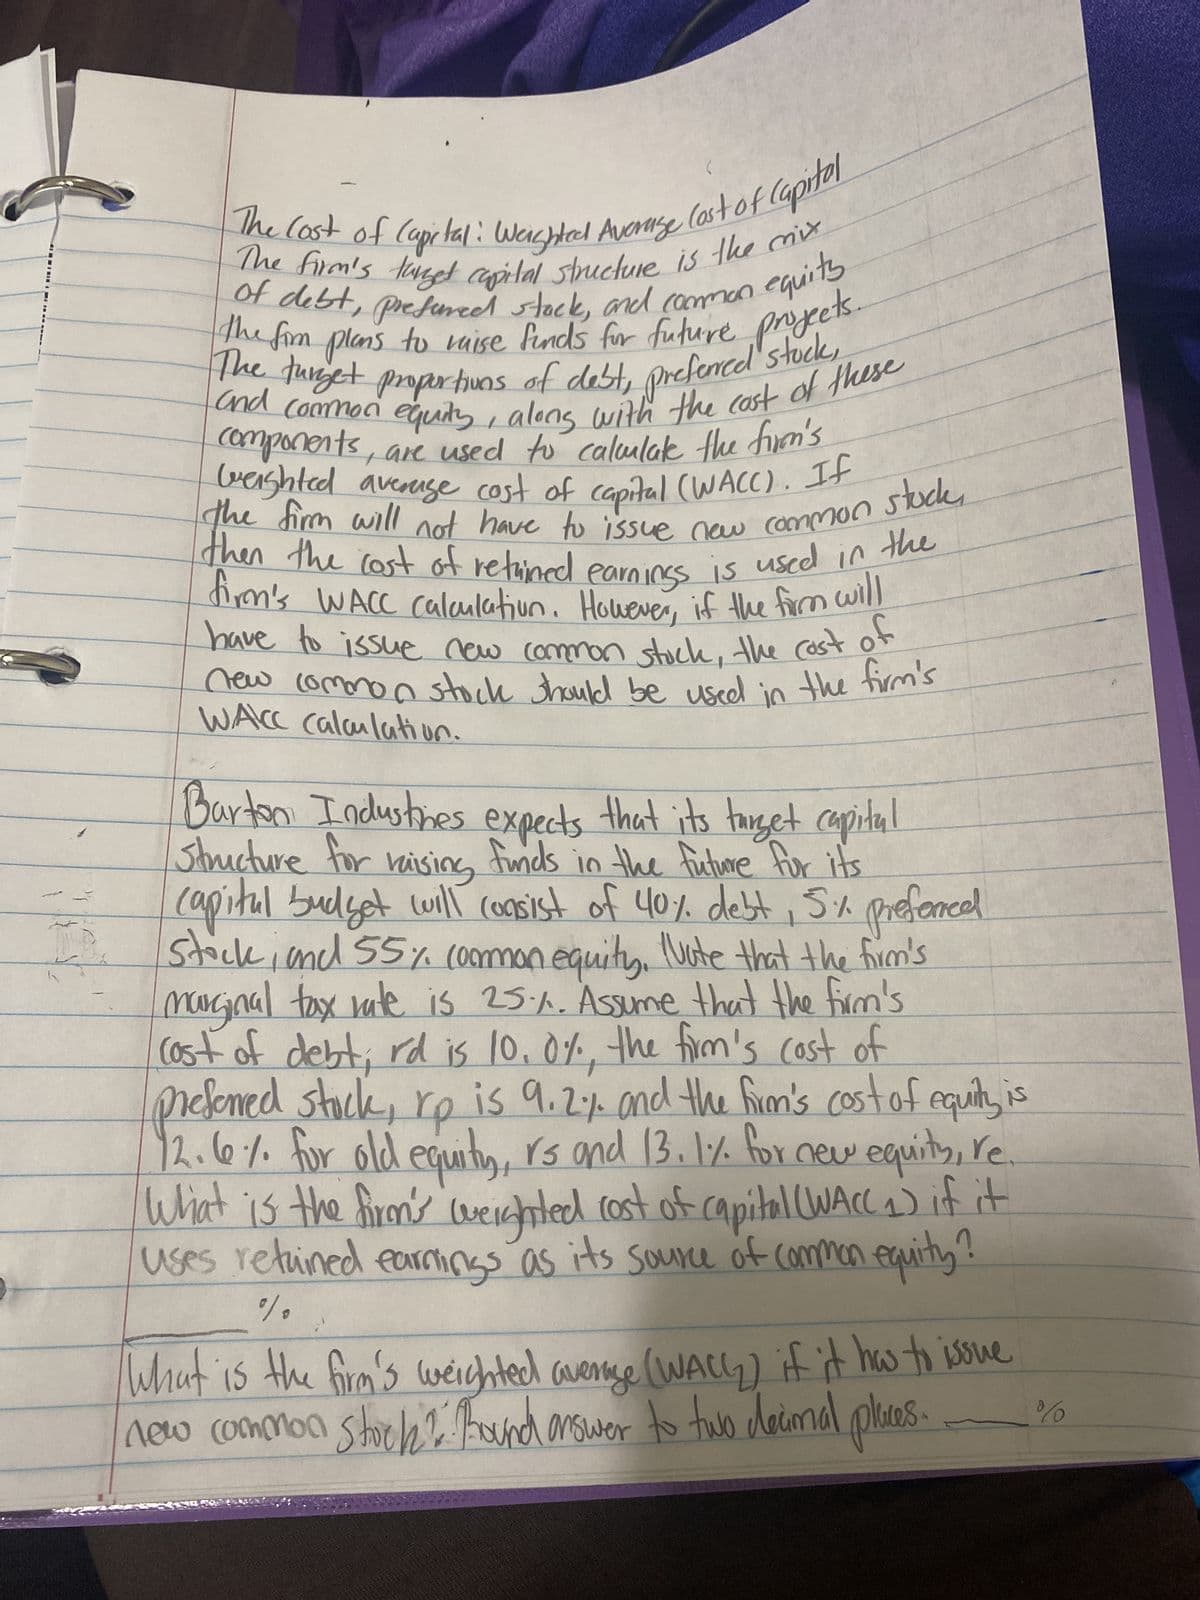 The Cost of Capital: Weighted Average Cost of Capital
The firm's target capital structure is the mix
of debt, preferred stock, and common equity
the firm plans to raise funds for future projects.
The target proportions of debt, preferred stock,
and common equity, along with the cost of these
components, are used to calculate the firm's
weighted average cost of capital (WACC). If
the firm will not have to issue new common stock,
then the cost of retained earnings is used in the
firm's WACC calculation. However, if the firm will
have to issue new common stock, the cost of
new common stock should be used in the firm's
WACC calculation.
Barton Industries expects that its target capital
structure for raising funds in the future for its
capital budget will consist of 40% debt, 5% preferred
stock, and 55% common equity. Note that the firm's
marginal tax rate is 25%. Assume that the firm's
cost of debt, rd is 10.0%, the firm's cost of
preferred stock, rp is 9.2% and the firm's cost of equity is
12.6% for old equity, rs and 13.1% for new equity, re.
What is the firm's weighted cost of capital (WACC 1) if it
uses retained earnings as its source of common equity?
______%
What is the firm's weighted average (WACC2) if it has to issue
new common stock? Round answer to two decimal places. ______%